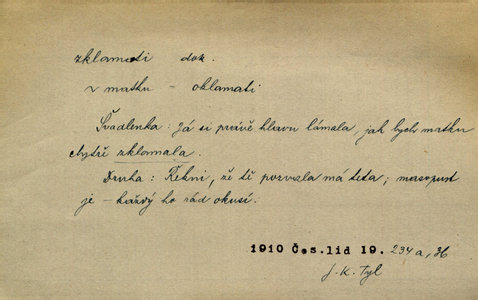 zklamati dok.
v matku - oklamati
Švadlenka: Já si právě hlavu lámala, jak bych matku
chytře zklamala.
Druha: Řekni, že tě pozvala má teta; masopust
je - každý ho rád okusí.
1910 Čes.lid 19. 234a, 36
J. K. Tyl